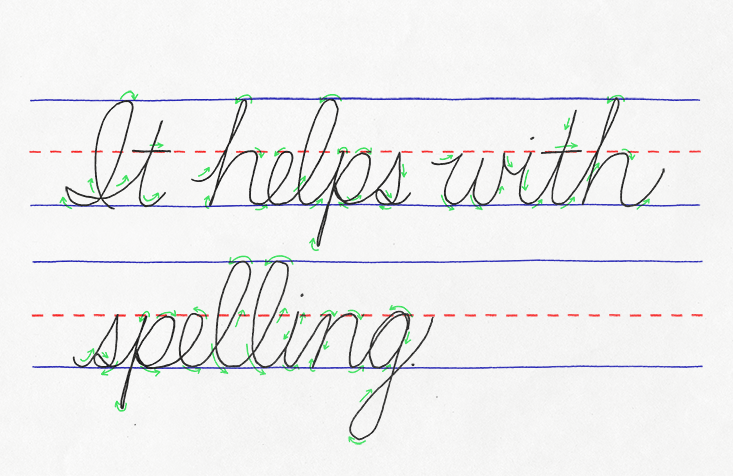 It helps with
spelling.